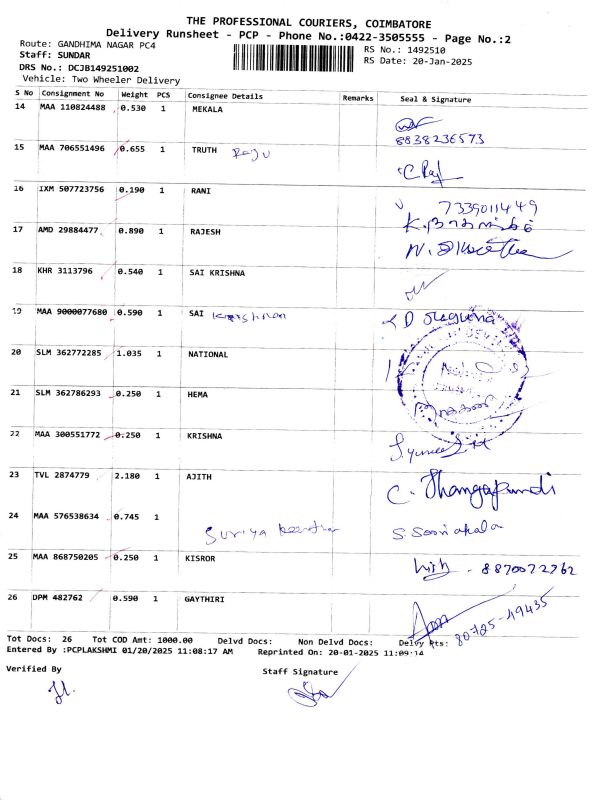 THE PROFESSIONAL COURIERS, COIMBATORE
Delivery Runsheet - PCP - Phone No.:0422-3505555 - Page No.:2
Route: GANDHIMA NAGAR PC4 RS No.: 1492510
Staff: SUNDAR RS Date: 20-Jan-2025
DRS No.: DCJB149251002
Vehicle: Two Wheeler Delivery
S No Consignment No Weight PCS Consignee Details Remarks Seal & Signature
14 MAA 110824488 0.530 1 MEKALA
8838236573
15 MAA 706551496 0.655 1 TRUTH Raju
C Raj
16 IXM 507723756 0.190 1 RANI
7339011449
17 AMD 29884477 0.890 1 RAJESH
18 KHR 3113796 0.540 1 SAI KRISHNA
19 MAA 9000077680 0.590 1 SAI Krishnan
20 SLM 362772285 1.035 1 NATIONAL
21 SLM 362786293 0.250 1 HEMA
22 MAA 300551772 0.250 1 KRISHNA
23 TVL 2874779 2.180 1 AJITH
C. Thangapandi
24 MAA 576538634 0.745 1
Suriya
25 MAA 868750205 0.250 1 KISROR
8870072762
26 DPM 482762 0.590 1 GAYTHIRI
80725-49435
Tot Docs: 26 Tot COD Amt: 1000.00 Delvd Docs: Non Delvd Docs: Delvy Pts:
Entered By :PCPLAKSHMI 01/20/2025 11:08:17 AM Reprinted On: 20-01-2025 11:09:14
Verified By Staff Signature